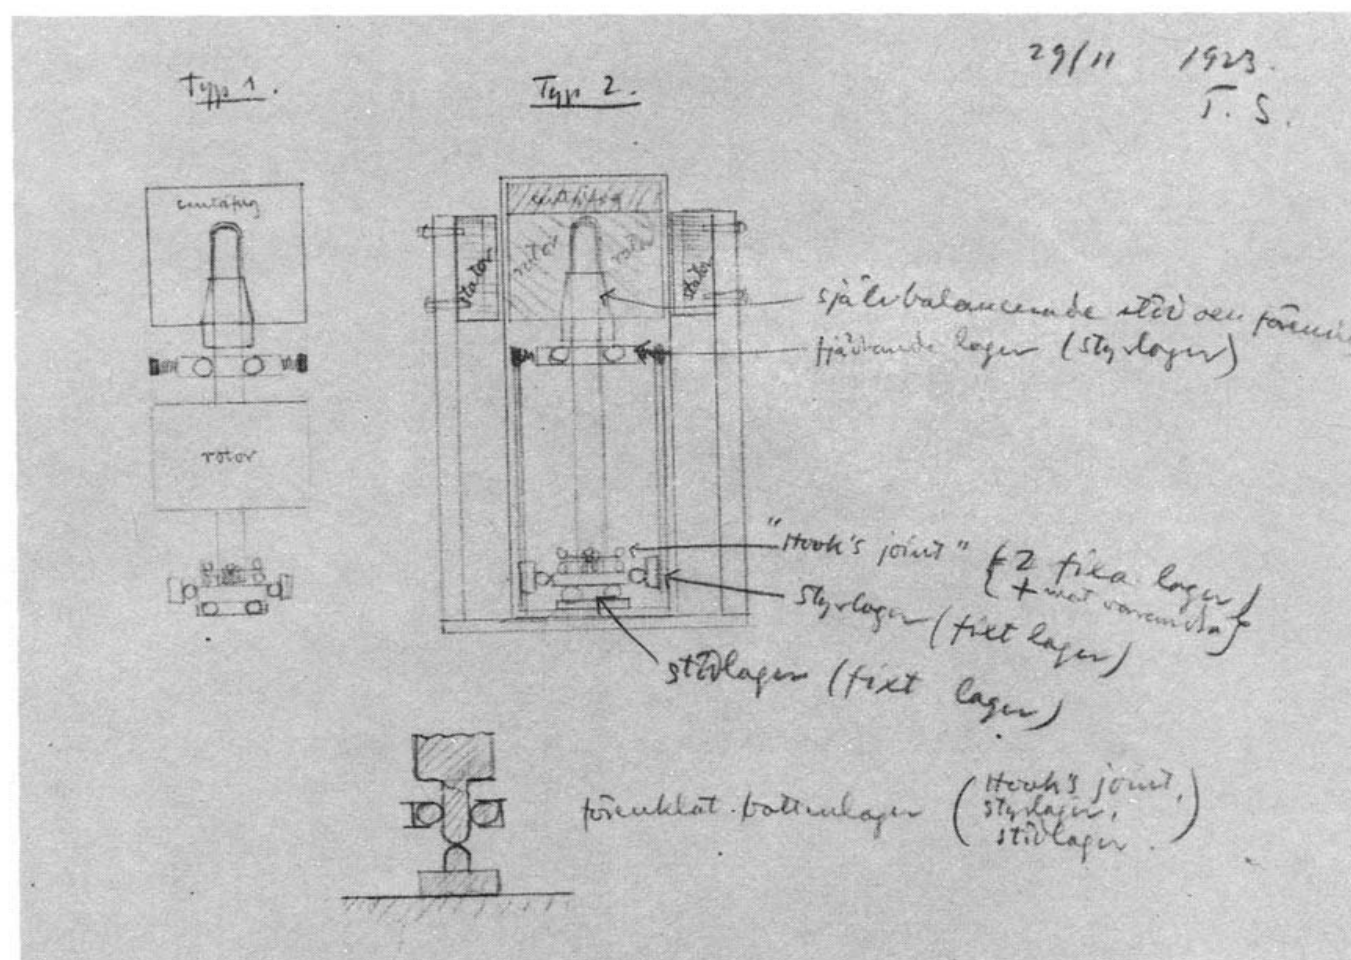 29/11 1923.
T. S.
Typ 1.
Typ 2.
centrifug
rotor
centrifug
rotor
rotor
stator
stator
självbalancerande stöd
fjädrande lager (styrlager)
"Hook's joint" (2 fixa lager
+ mot varandra)
styrlager (fixt lager)
stödlager (fixt lager)
förenklat bottenlager (Hook's joint,
styrlager,
stödlager.)